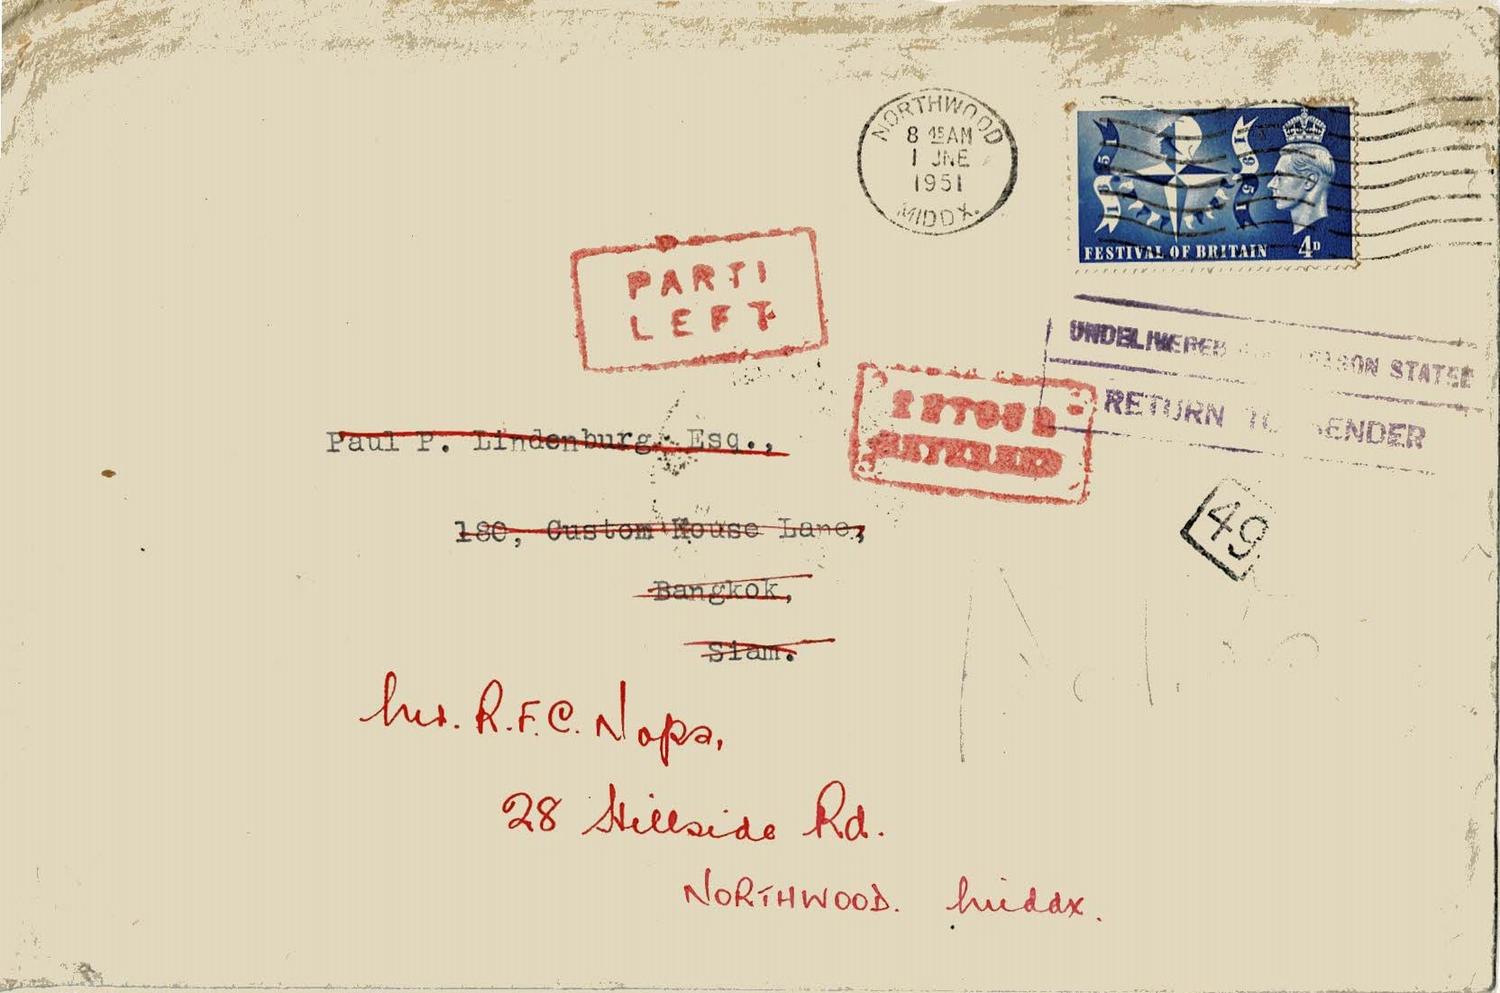 NORTHWOOD
8 45AM
1 JNE
1951
MIDDX.
1851
1951
FESTIVAL OF BRITAIN 4D
PARTI
LEFT
UNDELIVERED REASON STATED
RETURN TO SENDER
RETOUR
RETURNED
Paul P. Lindenburg, Esq.,
180, Custom House Lane,
Bangkok,
Siam.
49
Mrs. R.F.C. Nops,
28 Hillside Rd.
NORTHWOOD. Middx.